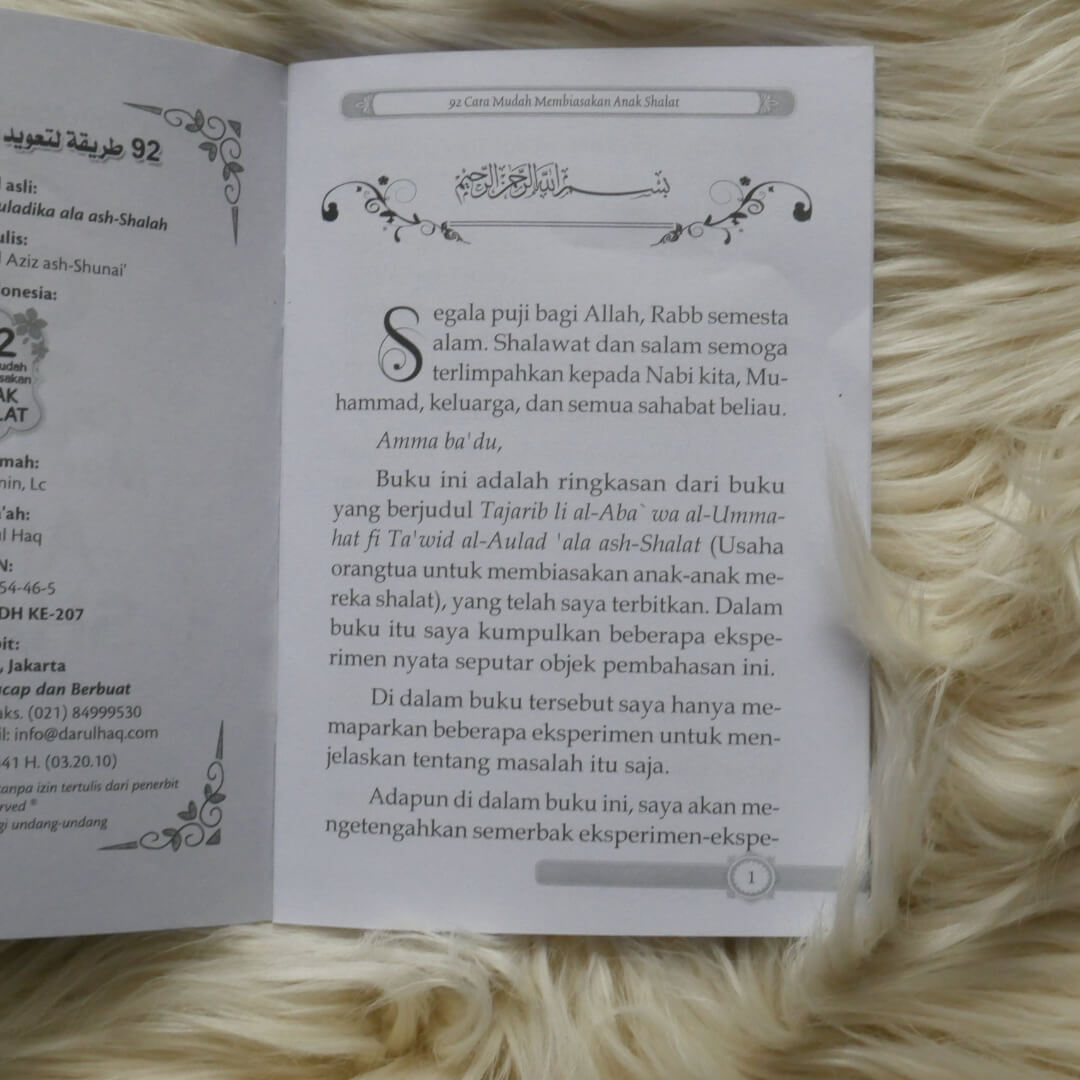 92 طريقة لتعويد
asli:
uladika ala ash-Shalah
ulis:
Aziz ash-Shunai'
onesia:
2
udah
sakan
AK
LAT
mah:
min, Lc
a'ah:
ul Haq
N:
54-46-5
DH KE-207
bit:
, Jakarta
cap dan Berbuat
aks. (021) 84999530
il: info@darulhaq.com
41 H. (03.20.10)
tanpa izin tertulis dari penerbit
rved ®
gi undang-undang
92 Cara Mudah Membiasakan Anak Shalat
بسم الله الرحمن الرحيم
Segala puji bagi Allah, Rabb semesta
alam. Shalawat dan salam semoga
terlimpahkan kepada Nabi kita, Mu-
hammad, keluarga, dan semua sahabat beliau.
Amma ba'du,
Buku ini adalah ringkasan dari buku
yang berjudul Tajarib li al-Aba` wa al-Umma-
hat fi Ta'wid al-Aulad 'ala ash-Shalat (Usaha
orangtua untuk membiasakan anak-anak me-
reka shalat), yang telah saya terbitkan. Dalam
buku itu saya kumpulkan beberapa ekspe-
rimen nyata seputar objek pembahasan ini.
Di dalam buku tersebut saya hanya me-
maparkan beberapa eksperimen untuk men-
jelaskan tentang masalah itu saja.
Adapun di dalam buku ini, saya akan me-
ngetengahkan semerbak eksperimen-ekspe-
1